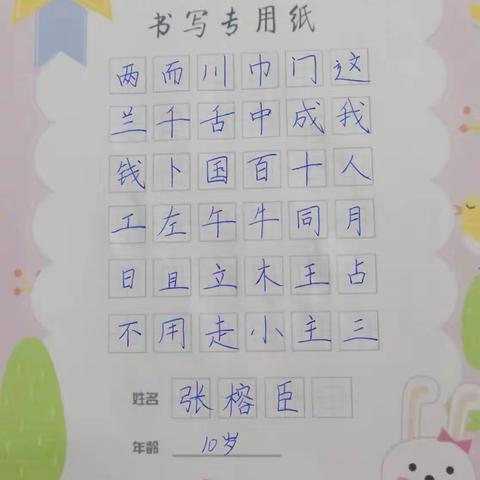 书写专用纸
两而川巾门这
兰千舌中成我
钱卜国百十人
工左午牛同月
日且立木王占
不用走小主三
姓名 张榕臣
年龄 10岁